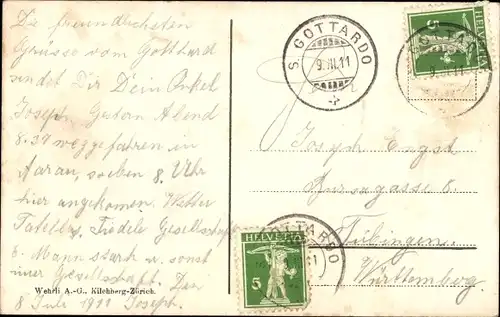 Die freundlichsten
Grüsse vom Gotthard
sendet Dir Dein Onkel
Joseph. Gestern Abend
8.39 weggefahren in
Aarau, soeben 8 Uhr
hier angekommen. Wetter
Fidele Gesellschaft
6 Mann stark u. sonst
Gesellschaft. Dein
8 Juli 1911 Joseph.
Wehrli A.-G., Kilchberg-Zürich.
S. GOTTARDO
HELVETIA
5
Joseph Engst
Bursagasse 8.
Tübingen
Württemberg
GOTTARDO
HELVETIA
5